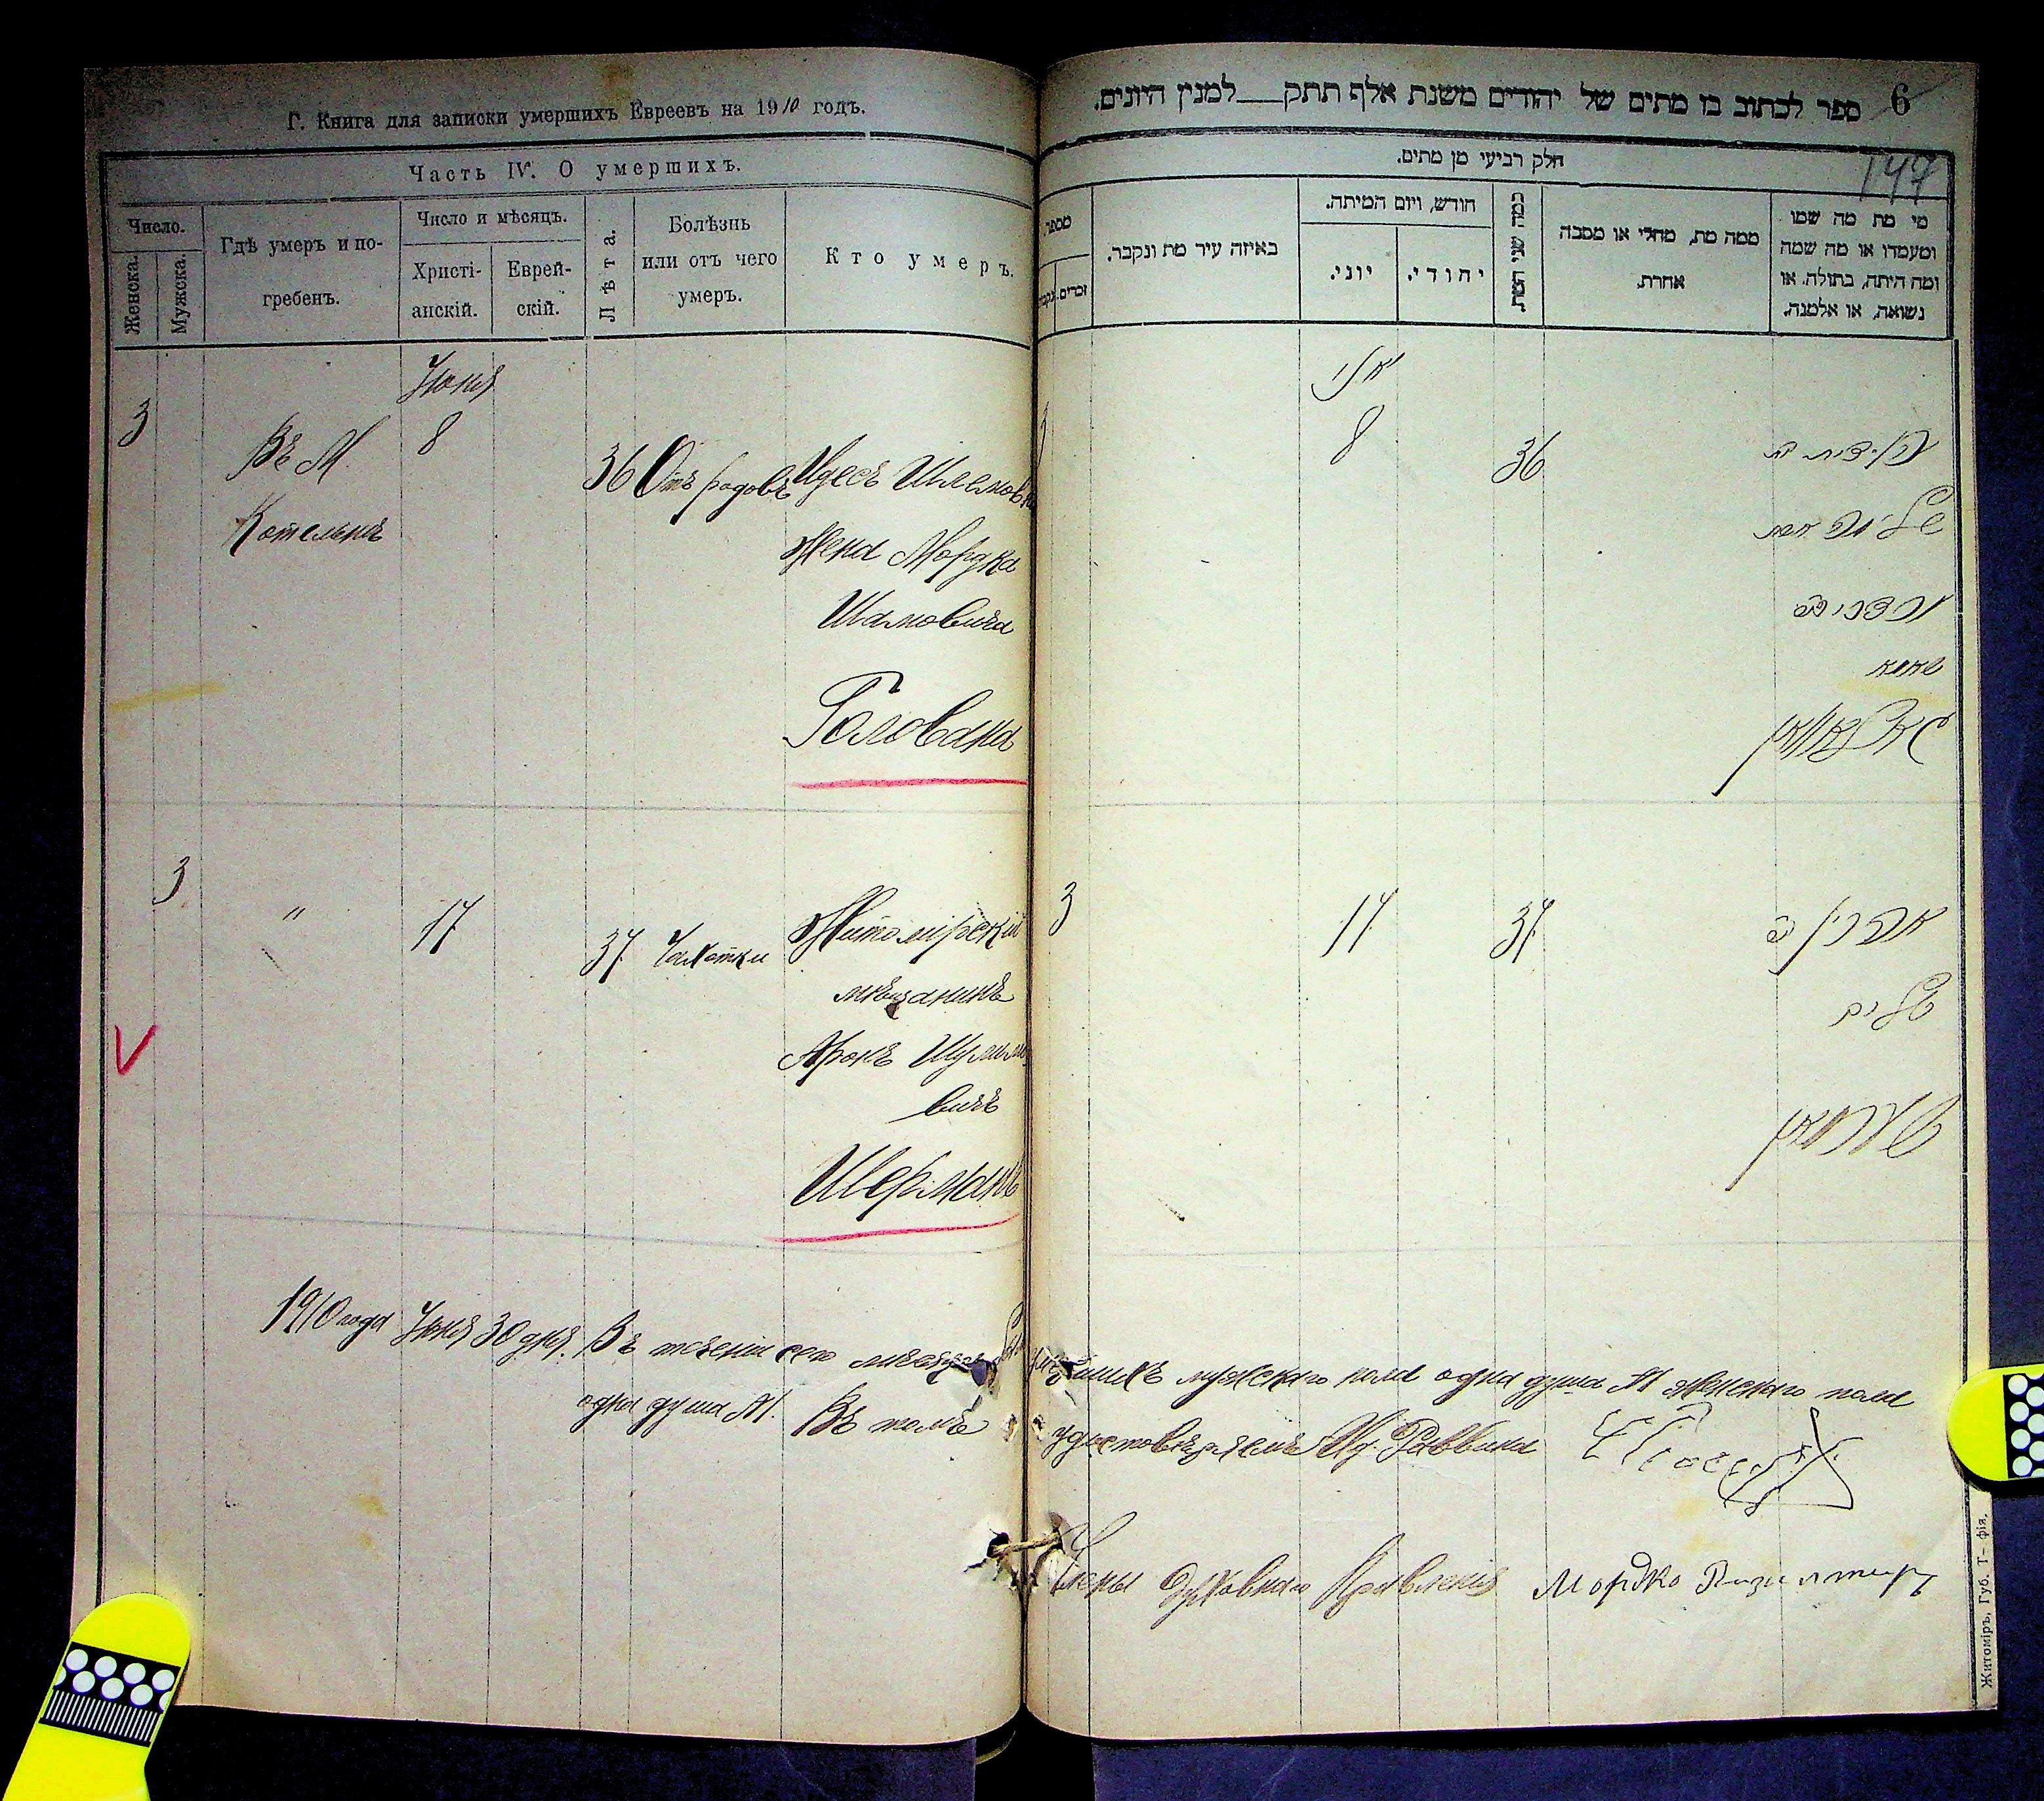 Г. Книга для записки умершихъ Евреевъ на 1910 годъ.
Часть IV. О умершихъ.
Число.
Женска.
Мужска.
Гдѣ умеръ и по-
гребенъ.
Число и мѣсяцъ.
Христі-
анскій.
Еврей-
скій.
Лѣта.
Болѣзнь
или отъ чего
умеръ.
Кто умеръ.
Іюня
3
Въ М.
8
36 Отъ родовъ Идесъ Шлемовна
Котельнѣ
жена Мордка
Шамовича
Голована
3
"
17
37. Чахотки
Житомірскій
мѣщанинъ
Аронъ Шулимо
вичъ
Шерманъ
V
1910 года Іюня 30 дня. Въ теченіи сего мѣсяца
одна душа М. Въ томъ
ספר לכתוב בו מתים של יהודים משנת אלף תתק למנין היונים.
6
147
חלק רביעי מן מתים.
מספר
זכרים.
באיזה עיר מת ונקבר.
חודש, ויום המיתה.
יוני.
יהודי.
כמה שני המת.
ממה מת, מחלי או מסבה
אחרת.
מי מת מה שמו
ומעמדו או מה שמה
ומה היתה, בתולה, או
נשואה, או אלמנה.
8
36
שלומה אשת
מרדכי ב
שאמא
גאלאוואן
3
17.
37.
אהרן ב
שולים
שערמאן
мужскаго пола одна душа М женскаго пола
удостовѣряемъ И. д. Раввина
Члены Духовнаго Правленія Мордко
Житоміръ, Губ. Т—фія.